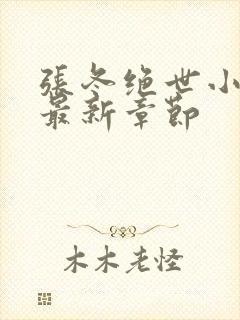 張冬绝世小
最新章節
木木老怪